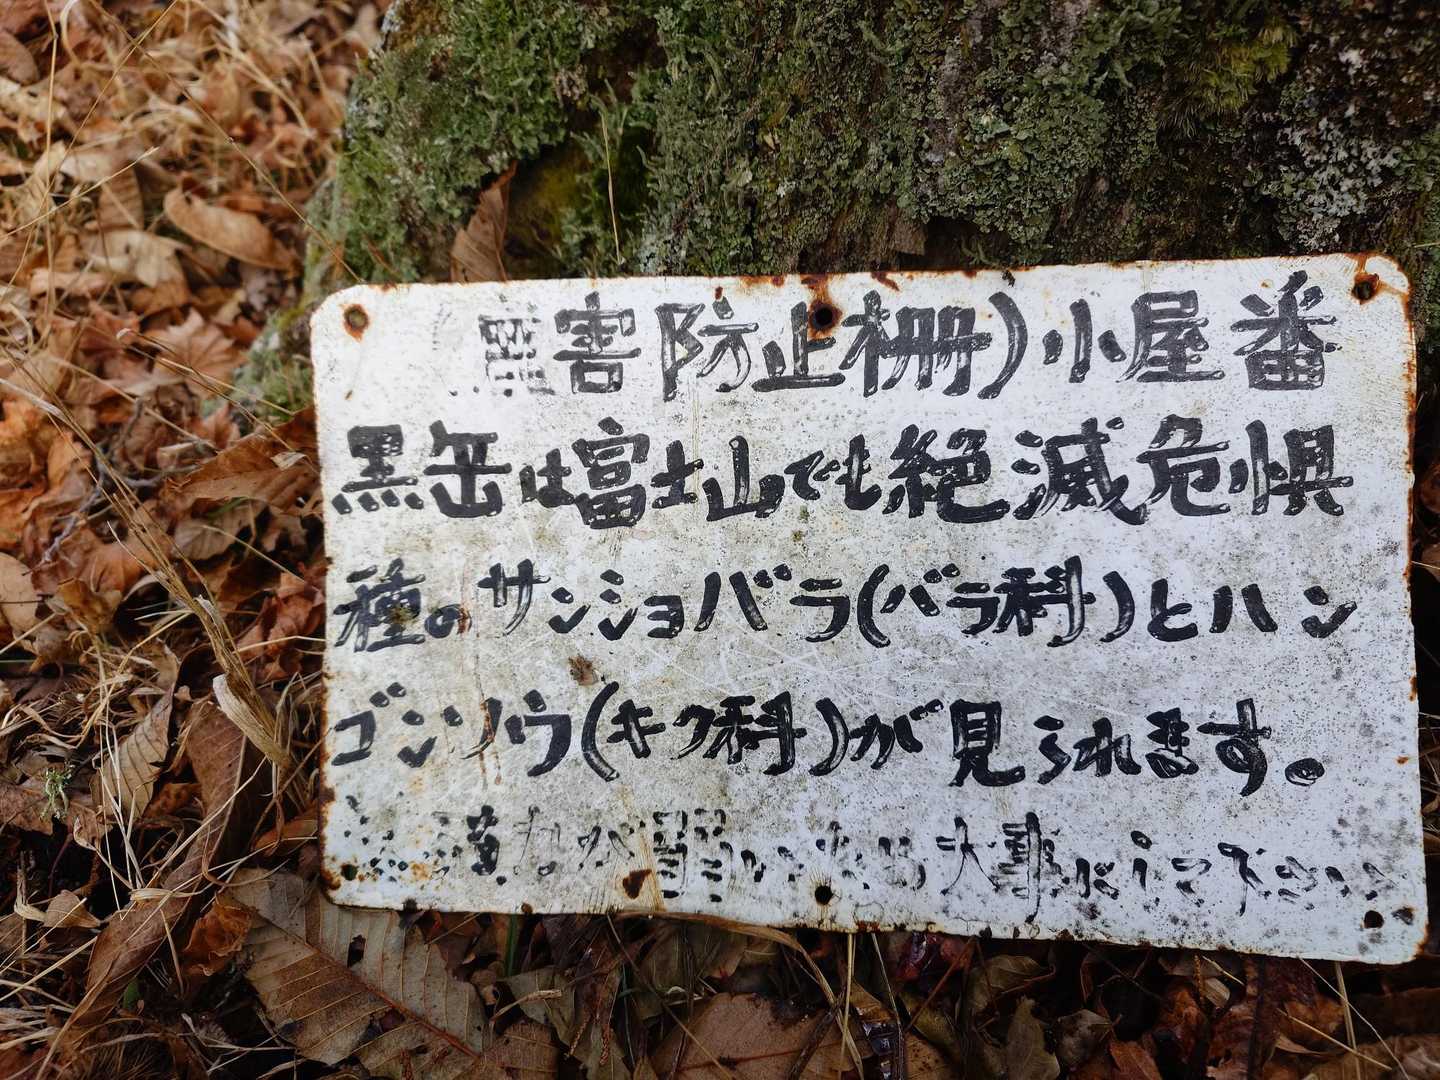 (鹿害防止柵)小屋番
黒岳は富士山でも絶滅危惧
種のサンショバラ(バラ科)とハン
ゴンソウ(キク科)が見られます。
が弱い 大事にして下さい